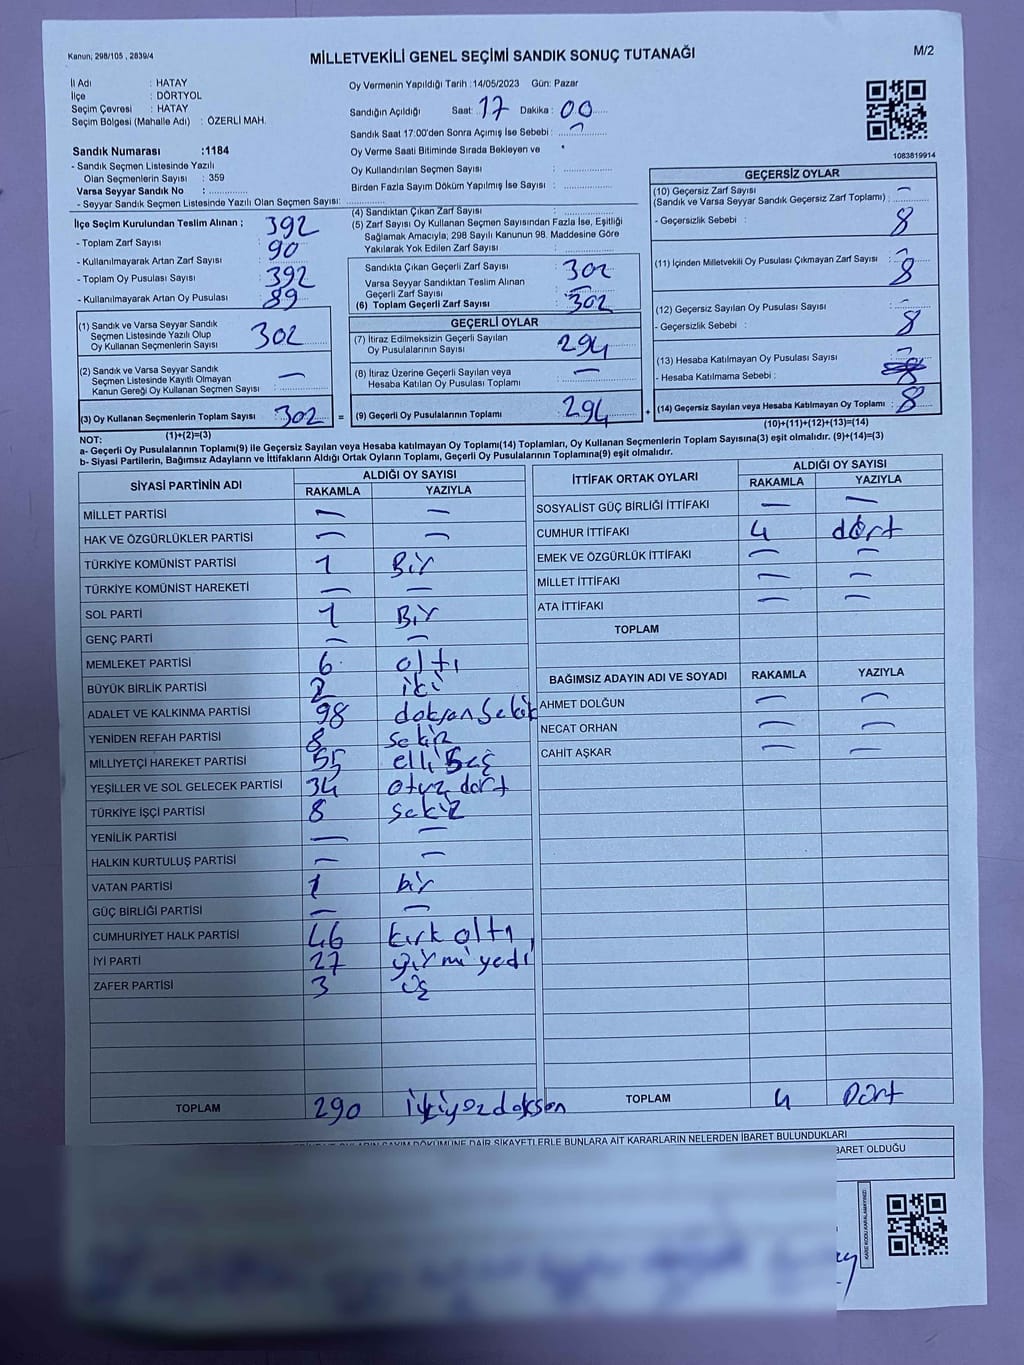 Kanun; 298/105 , 2839/4
MİLLETVEKİLİ GENEL SEÇİMİ SANDIK SONUÇ TUTANAĞI
M/2
İl Adı : HATAY
İlçe : DÖRTYOL
Seçim Çevresi : HATAY
Seçim Bölgesi (Mahalle Adı) : ÖZERLİ MAH.
Oy Vermenin Yapıldığı Tarih : 14/05/2023 Gün: Pazar
Sandığın Açıldığı Saat: 17 Dakika : 00
Sandık Saat 17:00'den Sonra Açımış İse Sebebi : —
Oy Verme Saati Bitiminde Sırada Bekleyen ve
Oy Kullandırılan Seçmen Sayısı :
Birden Fazla Sayım Döküm Yapılmış İse Sayısı :
1083819914
Sandık Numarası :1184
- Sandık Seçmen Listesinde Yazılı
Olan Seçmenlerin Sayısı : 359
Varsa Seyyar Sandık No :
- Seyyar Sandık Seçmen Listesinde Yazılı Olan Seçmen Sayısı:
İlçe Seçim Kurulundan Teslim Alınan ;
- Toplam Zarf Sayısı : 392
- Kullanılmayarak Artan Zarf Sayısı : 90
- Toplam Oy Pusulası Sayısı : 392
- Kullanılmayarak Artan Oy Pusulası : 89
(1) Sandık ve Varsa Seyyar Sandık
Seçmen Listesinde Yazılı Olup
Oy Kullanan Seçmenlerin Sayısı : 302
(2) Sandık ve Varsa Seyyar Sandık
Seçmen Listesinde Kayıtlı Olmayan
Kanun Gereği Oy Kullanan Seçmen Sayısı : —
(3) Oy Kullanan Seçmenlerin Toplam Sayısı : 302 =
(1)+(2)=(3)
(4) Sandıktan Çıkan Zarf Sayısı :
(5) Zarf Sayısı Oy Kullanan Seçmen Sayısından Fazla İse, Eşitliği
Sağlamak Amacıyla; 298 Sayılı Kanunun 98. Maddesine Göre
Yakılarak Yok Edilen Zarf Sayısı :
Sandıkta Çıkan Geçerli Zarf Sayısı : 302
Varsa Seyyar Sandıktan Teslim Alınan
Geçerli Zarf Sayısı : —
(6) Toplam Geçerli Zarf Sayısı : 302
GEÇERLİ OYLAR
(7) İtiraz Edilmeksizin Geçerli Sayılan
Oy Pusulalarının Sayısı : 294
(8) İtiraz Üzerine Geçerli Sayılan veya
Hesaba Katılan Oy Pusulası Toplamı : —
(9) Geçerli Oy Pusulalarının Toplamı : 294 +
GEÇERSİZ OYLAR
(10) Geçersiz Zarf Sayısı : —
(Sandık ve Varsa Seyyar Sandık Geçersiz Zarf Toplamı)
- Geçersizlik Sebebi : 8
(11) İçinden Milletvekili Oy Pusulası Çıkmayan Zarf Sayısı : —
8
(12) Geçersiz Sayılan Oy Pusulası Sayısı : —
- Geçersizlik Sebebi : 8
(13) Hesaba Katılmayan Oy Pusulası Sayısı : —
- Hesaba Katılmama Sebebi :
(14) Geçersiz Sayılan veya Hesaba Katılmayan Oy Toplamı : 8
(10)+(11)+(12)+(13)=(14)
NOT:
a- Geçerli Oy Pusulalarının Toplamı(9) ile Geçersiz Sayılan veya Hesaba katılmayan Oy Toplamı(14) Toplamları, Oy Kullanan Seçmenlerin Toplam Sayısına(3) eşit olmalıdır. (9)+(14)=(3)
b- Siyasi Partilerin, Bağımsız Adayların ve İttifakların Aldığı Ortak Oyların Toplamı, Geçerli Oy Pusulalarının Toplamına(9) eşit olmalıdır.
SİYASİ PARTİNİN ADI ALDIĞI OY SAYISI
RAKAMLA YAZIYLA
MİLLET PARTİSİ — —
HAK VE ÖZGÜRLÜKLER PARTİSİ — —
TÜRKİYE KOMÜNİST PARTİSİ 1 Bir
TÜRKİYE KOMÜNİST HAREKETİ — —
SOL PARTİ 1 Bir
GENÇ PARTİ — —
MEMLEKET PARTİSİ 6 altı
BÜYÜK BİRLİK PARTİSİ 2 iki
ADALET VE KALKINMA PARTİSİ 98 doksan sekiz
YENİDEN REFAH PARTİSİ 8 sekiz
MİLLİYETÇİ HAREKET PARTİSİ 55 elli Beş
YEŞİLLER VE SOL GELECEK PARTİSİ 34 otuz dört
TÜRKİYE İŞÇİ PARTİSİ 8 sekiz
YENİLİK PARTİSİ — —
HALKIN KURTULUŞ PARTİSİ — —
VATAN PARTİSİ 1 bir
GÜÇ BİRLİĞİ PARTİSİ — —
CUMHURİYET HALK PARTİSİ 46 kırk altı
İYİ PARTİ 27 yirmi yedi
ZAFER PARTİSİ 3 üç
TOPLAM 290 ikiyüzdoksan
İTTİFAK ORTAK OYLARI ALDIĞI OY SAYISI
RAKAMLA YAZIYLA
SOSYALİST GÜÇ BİRLİĞİ İTTİFAKI — —
CUMHUR İTTİFAKI 4 dört
EMEK VE ÖZGÜRLÜK İTTİFAKI — —
MİLLET İTTİFAKI — —
ATA İTTİFAKI — —
TOPLAM
BAĞIMSIZ ADAYIN ADI VE SOYADI RAKAMLA YAZIYLA
AHMET DOLĞUN — —
NECAT ORHAN — —
CAHİT AŞKAR — —
TOPLAM 4 Dört
SAYIM DÖKÜMÜNE DAİR ŞİKAYETLERLE BUNLARA AİT KARARLARIN NELERDEN İBARET BULUNDUKLARI
BARET OLDUĞU
KARE KODU KARALAMAYINIZ!